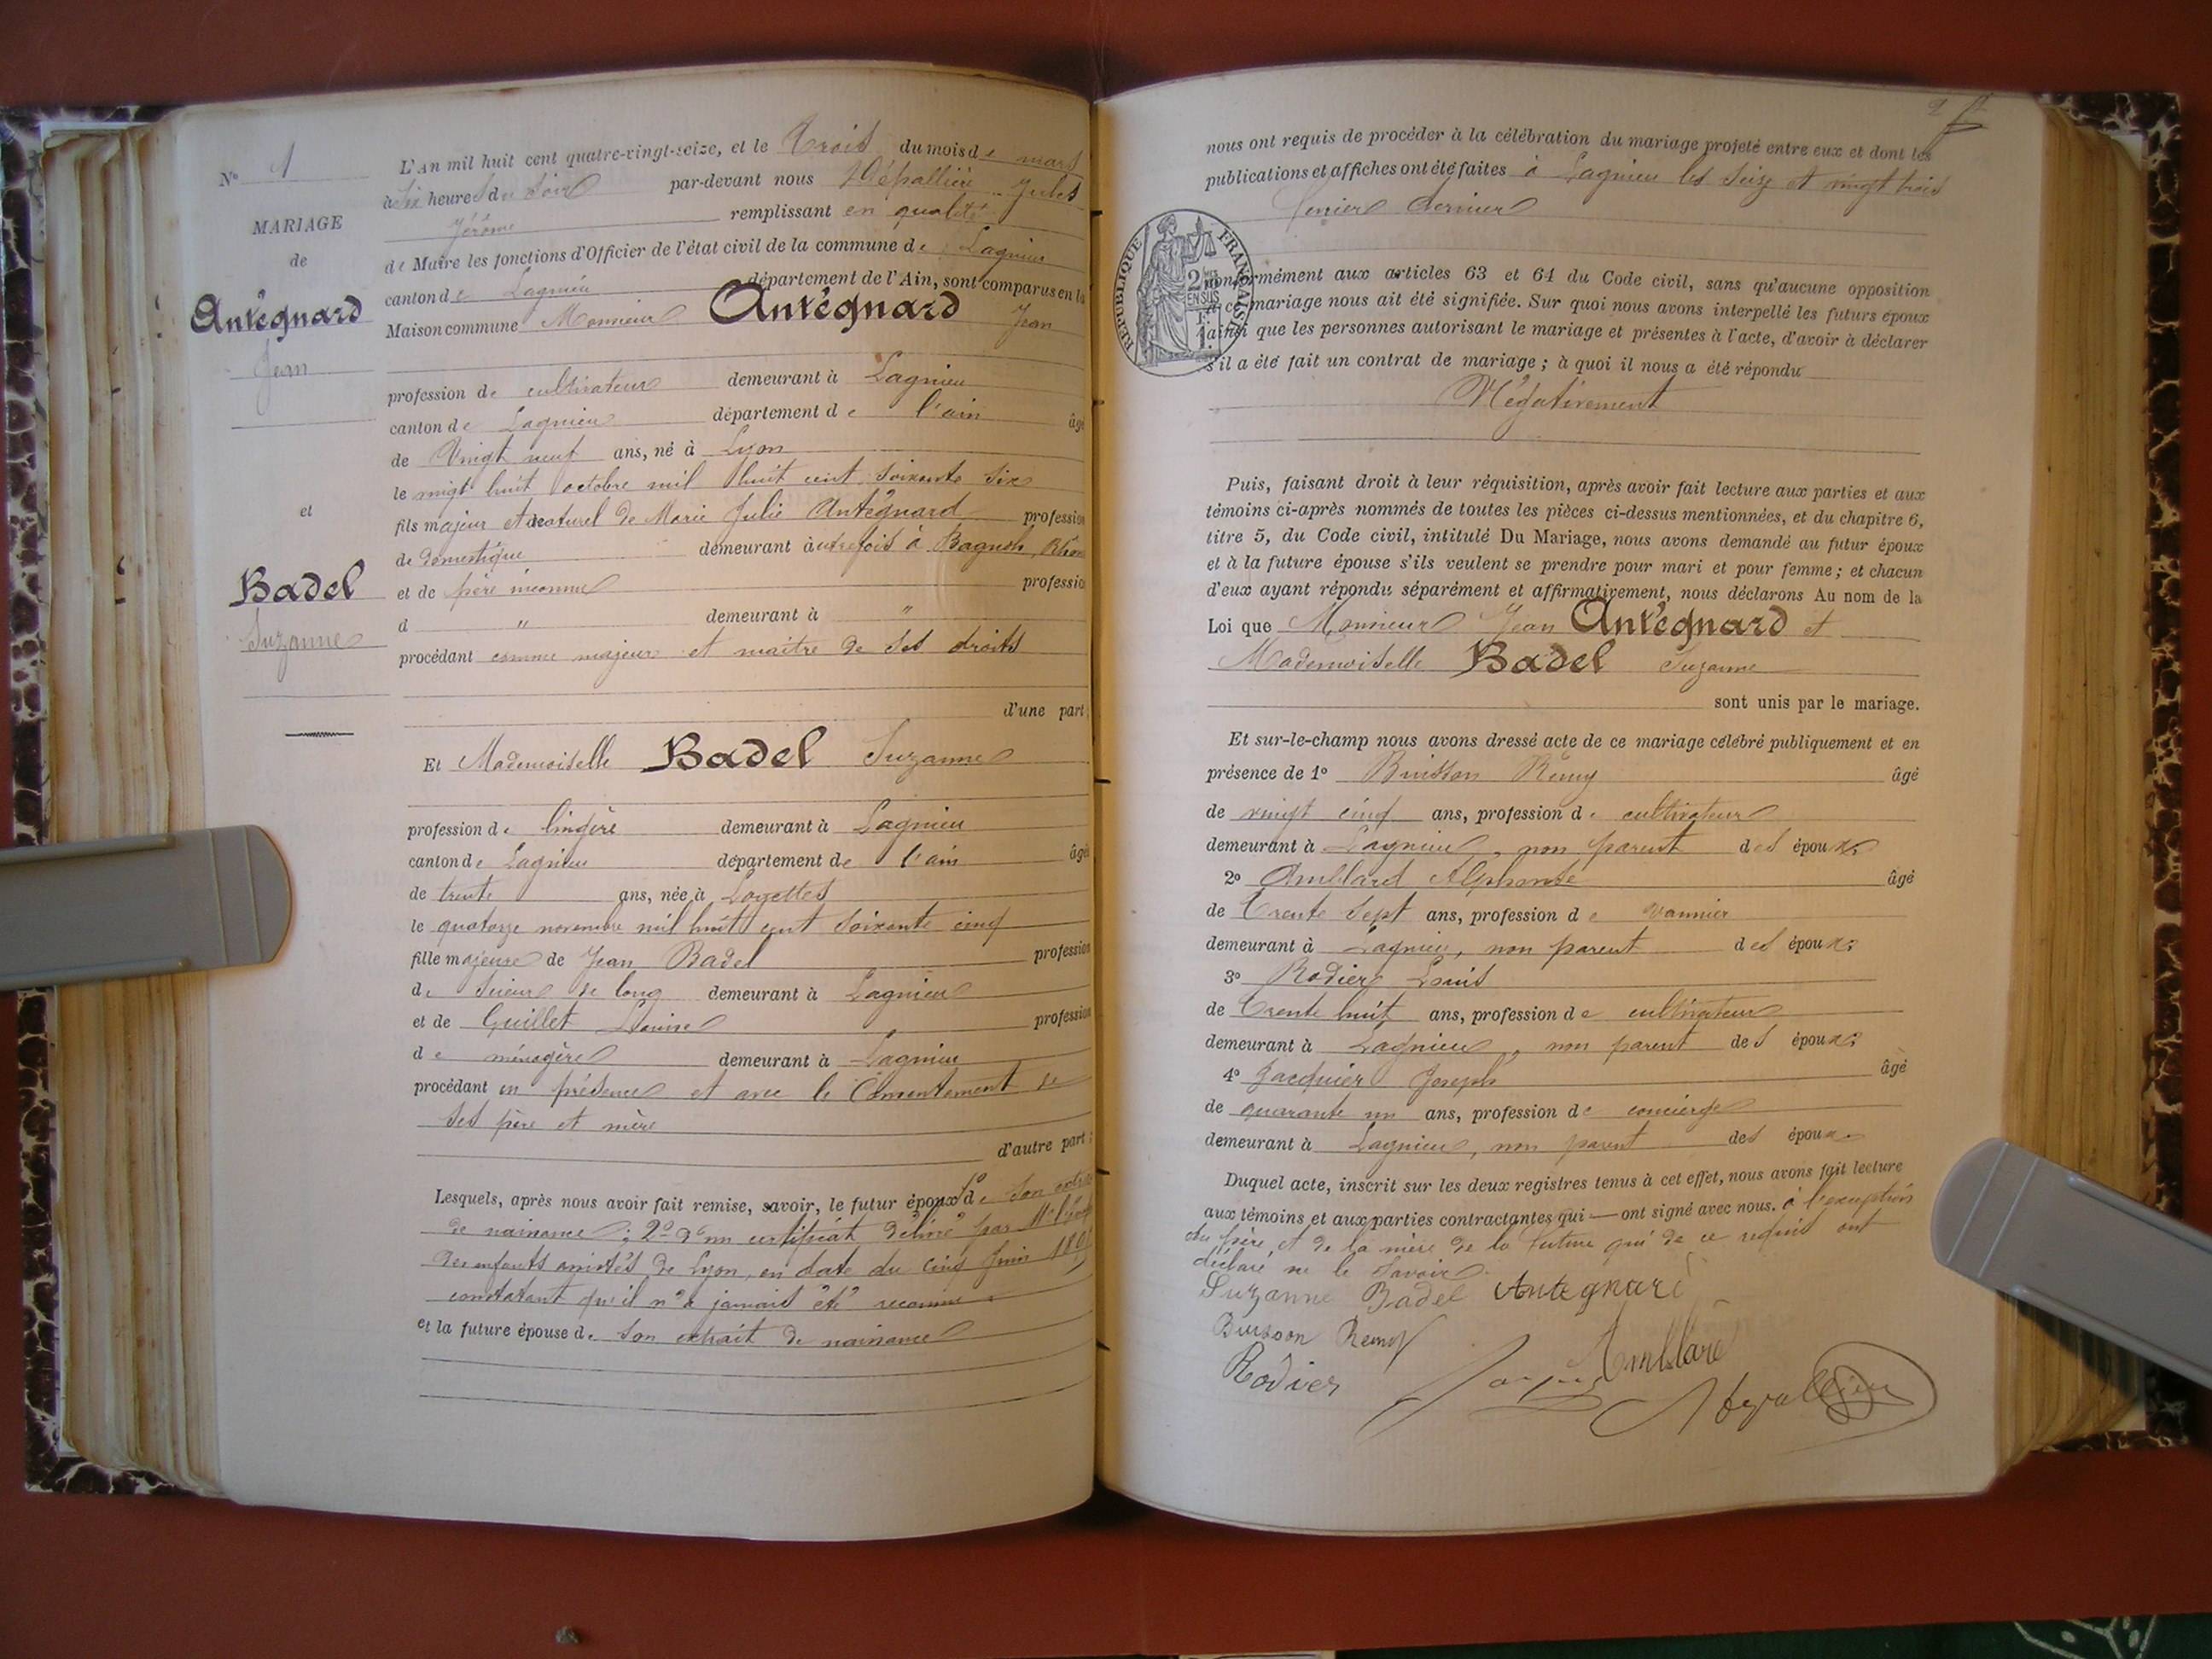 N° 1
MARIAGE
de
Antégnard
Jean
et
Badel
Suzanne
L'An mil huit cent quatre-vingt-seize, et le Trois du mois de mars
à Six heures du Soir par-devant nous Dépallière Jules
Jérôme remplissant en qualité
de Maire les fonctions d'Officier de l'état civil de la commune de Lagnieu
canton de Lagnieu département de l'Ain, sont comparus en la
Maison commune Monsieur Antégnard Jean
profession de cultivateur demeurant à Lagnieu
canton de Lagnieu département de l'ain âgé
de Vingt neuf ans, né à Lyon
le vingt huit octobre mil huit cent soixante six
fils majeur et naturel de Marie Julie Antégnard profession
de domestique demeurant autrefois à Bagnols, Rhône
et de père inconnu profession
d " demeurant à "
procédant comme majeur et maître de ses droits
d'une part;
Et Mademoiselle Badel Suzanne
profession de lingère demeurant à Lagnieu
canton de Lagnieu département de l'ain âgée
de trente ans, née à Loyettes
le quatorze novembre mil huit cent soixante cinq
fille majeure de Jean Badel profession
de Scieur de long demeurant à Lagnieu
et de Guillet Louise profession
de ménagère demeurant à Lagnieu
procédant en présence et avec le Consentement de
ses père et mère
d'autre part;
Lesquels, après nous avoir fait remise, savoir, le futur époux 1° de Son extrait
de naissance; 2° d'un certificat délivré par
des enfants assistés de Lyon, en date du cinq Juin
constatant qu'il n'a jamais été reconnu
et la future épouse de Son extrait de naissance
2
nous ont requis de procéder à la célébration du mariage projeté entre eux et dont les
publications et affiches ont été faites à Lagnieu les Seize et vingt trois
fevrier dernier
RÉPUBLIQUE FRANÇAISE
2/10 EN SUS
conformément aux articles 63 et 64 du Code civil, sans qu'aucune opposition
à ce mariage nous ait été signifiée. Sur quoi nous avons interpellé les futurs époux
ainsi que les personnes autorisant le mariage et présentes à l'acte, d'avoir à déclarer
s'il a été fait un contrat de mariage; à quoi il nous a été répondu
Négativement
Puis, faisant droit à leur réquisition, après avoir fait lecture aux parties et aux
témoins ci-après nommés de toutes les pièces ci-dessus mentionnées, et du chapitre 6,
titre 5, du Code civil, intitulé Du Mariage, nous avons demandé au futur époux
et à la future épouse s'ils veulent se prendre pour mari et pour femme; et chacun
d'eux ayant répondu séparément et affirmativement, nous déclarons Au nom de la
Loi que Monsieur Jean Antégnard et
Mademoiselle Badel Suzanne
sont unis par le mariage.
Et sur-le-champ nous avons dressé acte de ce mariage célébré publiquement et en
présence de 1° Buisson Rémy âgé
de vingt cinq ans, profession de cultivateur
demeurant à Lagnieu, non parent des époux;
2° Amblard Alphonse âgé
de Trente Sept ans, profession de vannier
demeurant à Lagnieu, non parent des époux;
3° Rodier Louis
de Trente huit ans, profession de cultivateur
demeurant à Lagnieu, non parent des époux;
4° Jacquier Joseph âgé
de quarante un ans, profession de concierge
demeurant à Lagnieu, non parent des époux.
Duquel acte, inscrit sur les deux registres tenus à cet effet, nous avons fait lecture
aux témoins et aux parties contractantes qui ont signé avec nous. à l'exception
du père et de la mère de la future qui de ce requis ont
déclaré ne le savoir
Suzanne Badel Antegnard
Buisson Remy Amblard
Rodier